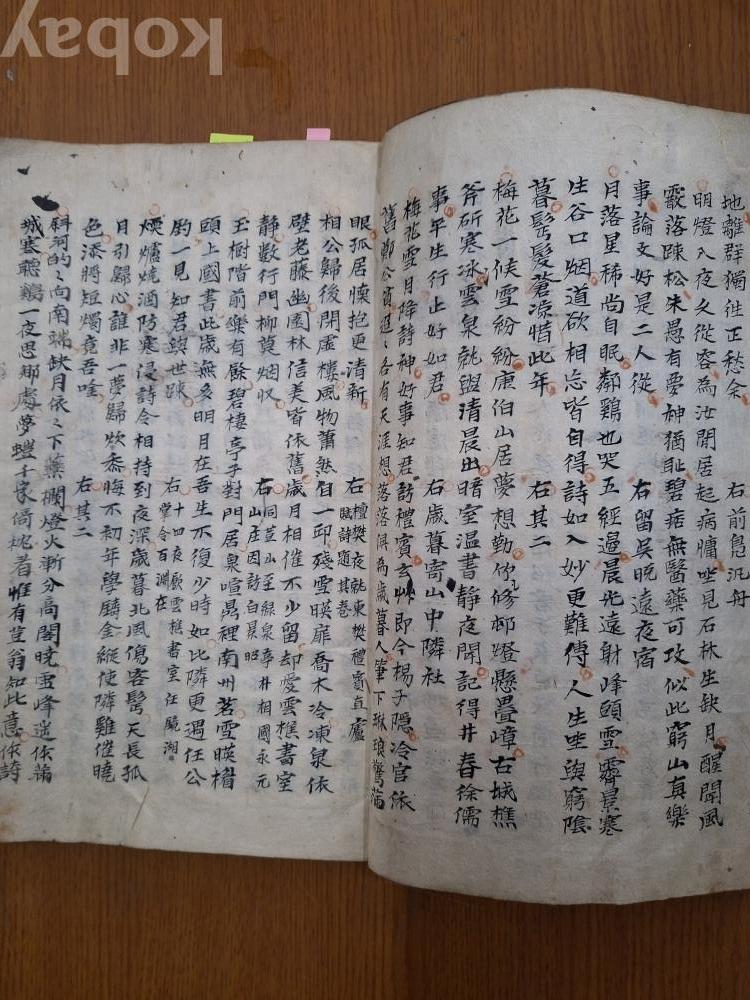 kobay
地離群獨徃正愁余 右前島汎舟
明燈入夜久從容為汝閒居起病慵坐見石林生缺月醒聞風
落踈松朱愚有夢神猶耻碧痞無醫藥可攻似此窮山真樂
事論文好是二人從 右留吳晩遠夜宿
月落星稀尚自眠鄰鷄也哭五經過晨光遠射峰頭雪霽景寒
生谷口烟道欲相忘皆自得詩如入妙更難傳人生坐與窮陰
暮髩髮蒼凉惜此年 右其二
梅花一候雪紛紛唐伯山居夢想勤竹修邨燈懸疊嶂古城樵
斧斫寒冰雲泉就盥清晨出暗室温書靜夜聞記得井春徐儒
事年生行止好如君 右歲暮寄山中隣社
梅花雪月降詩神好事知君訪禮賓玄艸即今楊子隱冷官依
舊鄭公貧迢迢各有天涯想落落俱為歲暮人筆下琳琅驚滿
眼孤居懷抱更清新 右檀樊夜就東樊禮賓直廬賦詩題其卷
相公歸後閉虛樓風物蕭然自一邱殘雪暎扉喬木冷凍泉依
壁老藤幽園林信美皆依舊歲月相催不少留却愛雲樵書室
靜數行門柳莫烟收 右同荳山至綠泉亭井相國永元山庄因訪白具昭
玉樹階前樂有餘碧棲亭子對門居泉喧萬裡南州茗雪暎楷
頭上國書此歲無多明月在吾生不復少時如比隣更過任公
釣一見知君與世踈 右十四夜飮雲樵書室任 掌令百淵在
煗爐燒酒防寒侵詩令相持到夜深歲暮北風傷客髩天長孤
月引歸心誰非一夢歸炊黍悔不初年學鑄金縱使隣雞催曉
色添將短燭竟吾唫 右其二
斜河的的向南端缺月依依下藥欄燈火漸分高閣曉雪峰迷依
城寒聽鷄一夜思那處夢蝗千家倚枕看惟有荳翁知此意依詩